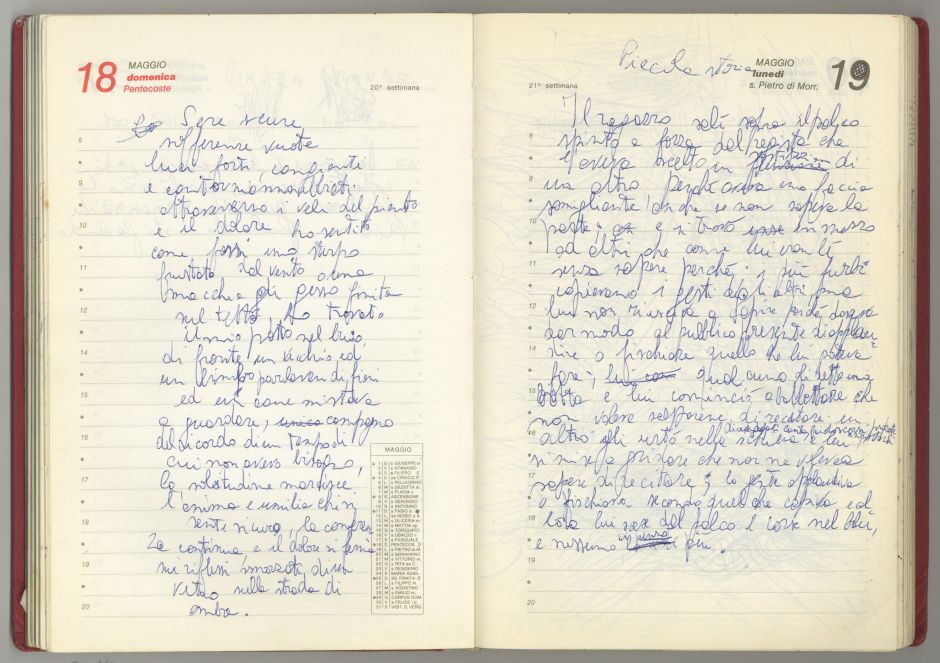 18 MAGGIO
domenica
Pentecoste
20ª settimana
Sere scure
sofferenze vuote
luci forti, cangianti
e contorni
attraverso i veli del pianto
e il dolore ho sentito
come fossi una sterpo
frustata dal vento o una
macchia di gesso finita
sul tetto, ho trovato
il mio posto nel buio,
di fronte un vecchio ed
un bimbo parlavan di fiori
ed ero come mi stava
a guardare, compagno
del ricordo di un tempo di
cui non avevo bisogno,
la solitudine marcisce
l'anima e umilia chi si
sente sicuro, la
continua, e il dolore si
sui riflessi di un
vetro sulla strada di
ombra.
8
9
10
11
12
13
14
15
16
17
18
19
20
MAGGIO
1 G s GIUSEPPE
2 V s ATANASIO
3 S s FILIPPO
4 D
5 L s PELLEGRINO
6 M s GIUDITTA
7 M s FLAVIA
8 G ASCENSIONE
9 V s GERONZIO
10 S s ANTONINO
11 D s FABIO
12 L ss NEREO e A.
13 M s GLICERIA
14 M s MATTIA
15 G s TORQUATO
16 V s UBALDO
17 S s PASQUALE
18 D PENTECOS.
19 L s PIETRO di M.
20 M s BERNARDINO
21 M s VITTORIO
22 G s RITA da C.
23 V s DESIDERIO
24 S MARIA AUSIL.
25 D SS TRINITÀ
26 L s FILIPPO N.
27 M s AGOSTINO
28 M s EMILIO
29 G CORPUS DOM.
30 V s FELICE
31 S VISIT. B. VERG.
Piccola storia
MAGGIO 19
lunedì
s. Pietro di Morr.
21ª settimana
Il ragazzo salì sopra il palco
spinto a forza dal regista che
l'aveva scelto in di
un altro, perché aveva una faccia
somigliante anche se non sapeva la
parte, e si trovò in mezzo
ad altri che come lui eran lì
senza sapere perché, i più furbi
copiavano i gesti degli altri ma
lui non riusciva a capire perché doveva
dar modo al pubblico presente di applau-
dire o fischiare quello che lui poteva
fare, qualcuno gli dette una
botta e lui cominciò a balbettare che
non voleva saperne di recitare, un
altro gli urtò nella schiena e lui
si mise a gridare che non ne voleva
sapere di recitare, la gente applaudiva
e fischiava secondo quel che capiva ed
lora lui dal palco
e nessuno più.
8
9
10
11
12
13
14
15
16
17
18
19
20